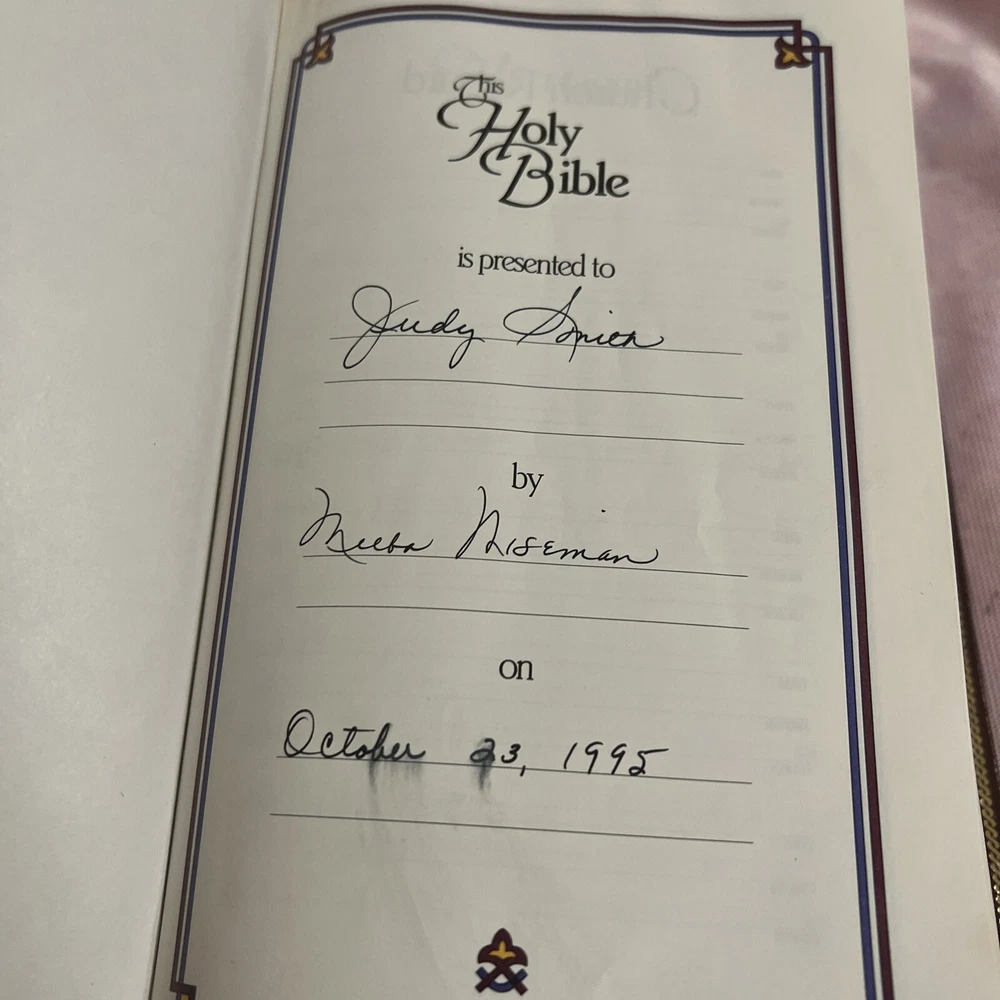 This
Holy
Bible
is presented to
Judy Smith
by
Melba Wiseman
on
October 23, 1995